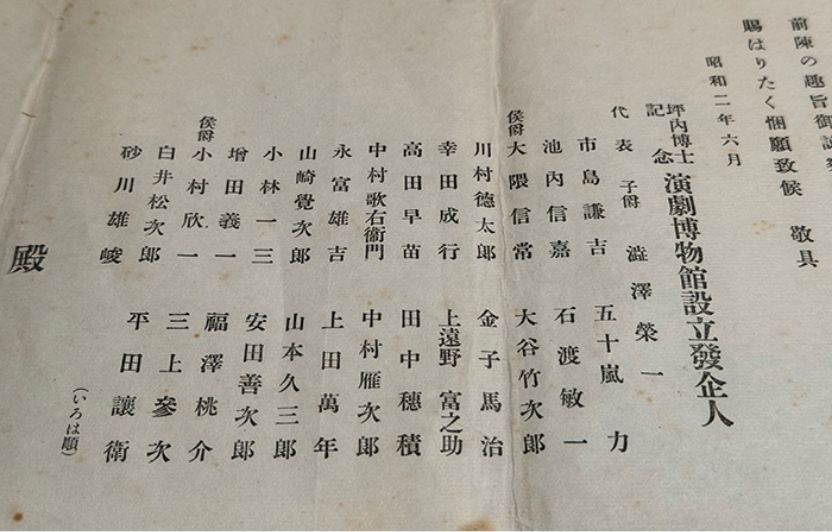 前陳の趣旨御
賜はりたく悃願致候 敬具
昭和二年六月
坪内博士記念 演劇博物館設立發企人
代表 子爵 澁澤榮一
市島謙吉
池内信嘉
侯爵 大隈信常
川村德太郎
幸田成行
高田早苗
中村歌右衞門
永富雄吉
山崎覺次郎
小林一三
增田義一
侯爵 小村欣一
白井松次郎
砂川雄峻
五十嵐 力
石渡敏一
大谷竹次郎
金子馬治
上遠野富之助
田中穗積
中村雁次郎
上田萬年
山本久三郎
安田善次郎
福澤桃介
三上參次
平田讓衛
(いろは順)
殿